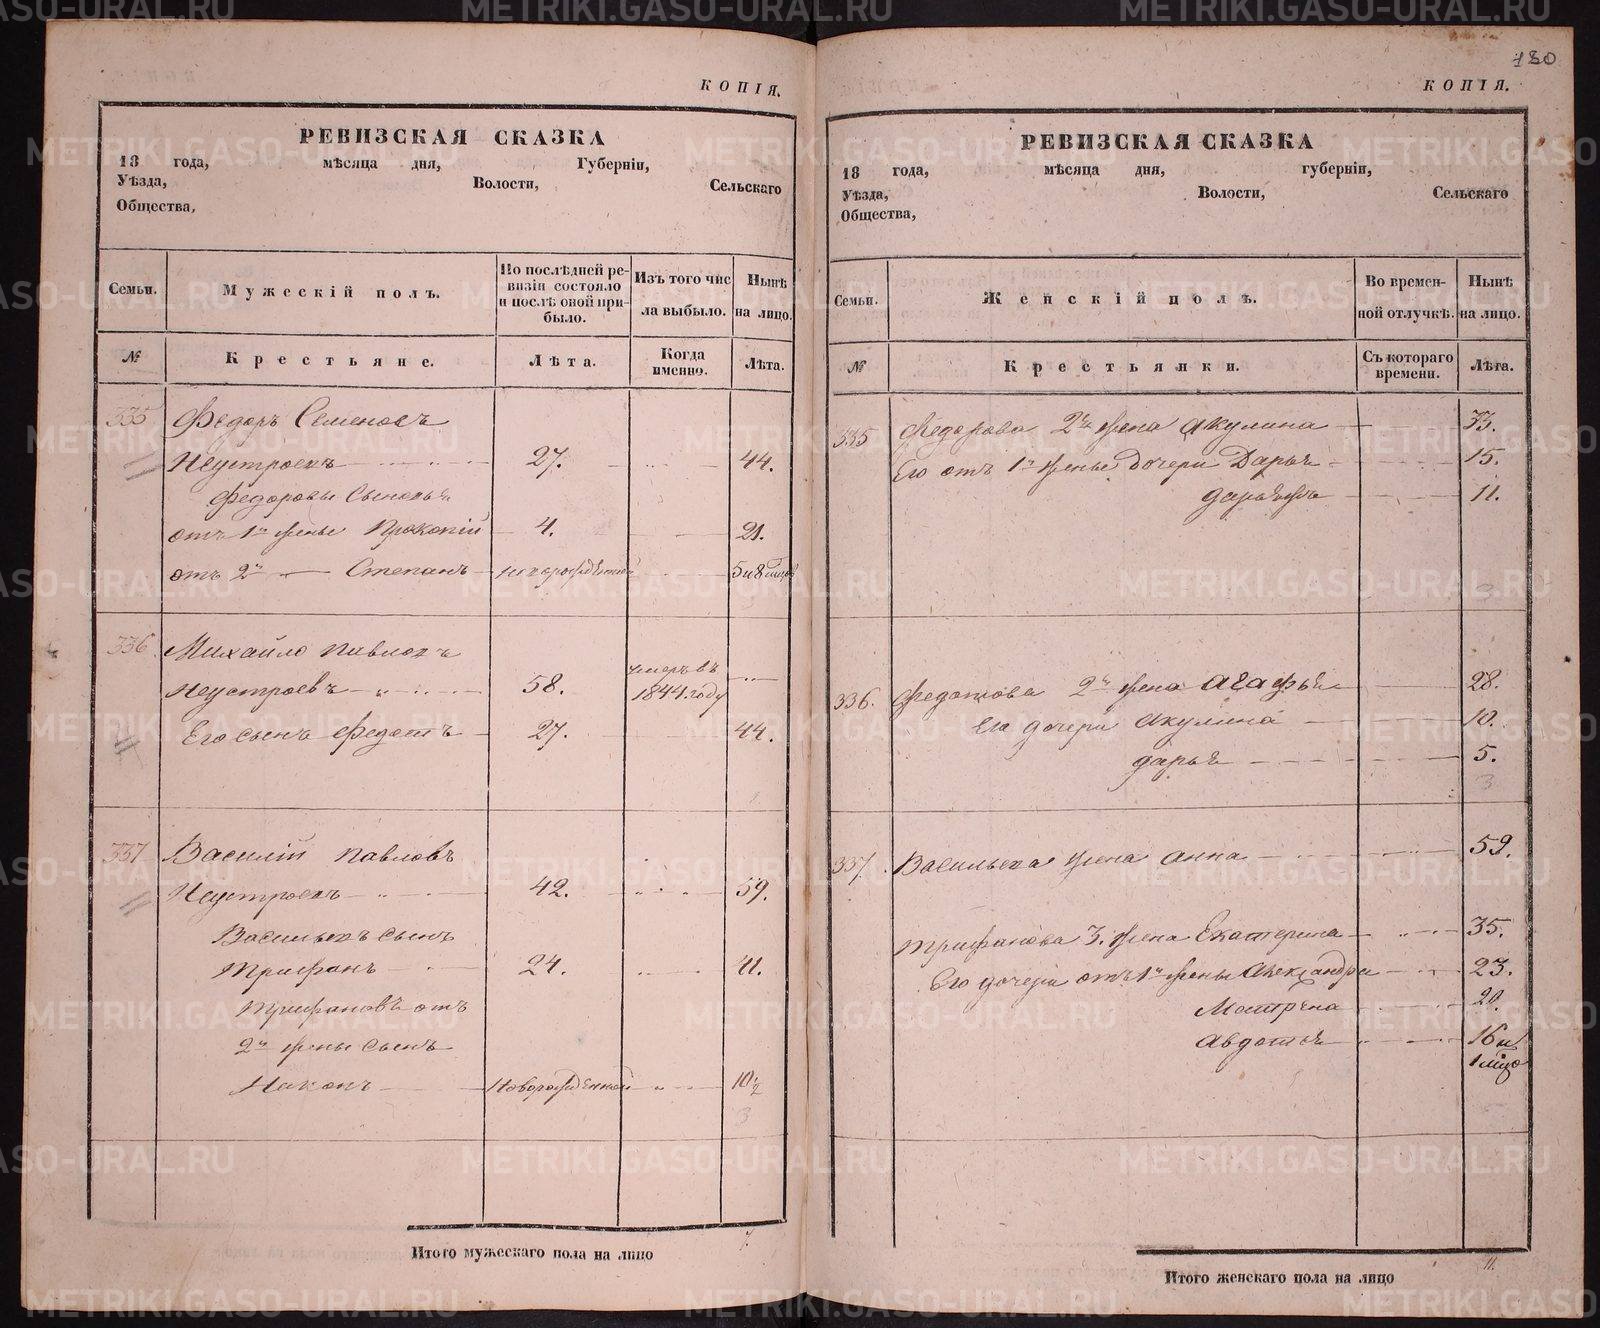 180
КОПІЯ.
РЕВИЗСКАЯ СКАЗКА
18 года, мѣсяца дня, Губерніи,
Уѣзда, Волости, Сельскаго
Общества,
Семьи. Мужескій полъ. По послѣдней ревизіи состояло и послѣ оной прибыло. Изъ того числа выбыло. Нынѣ на лицо.
№ Крестьяне. Лѣта. Когда именно. Лѣта.
335 Федоръ Семеновъ
Неустроевъ 27. 44.
Федоровы Сыновья
отъ 1й жены Прокопій 4. 21.
отъ 2й — Степанъ новорожденной 5 и 8 мѣсяц
336 Михайло Павловъ
Неустроевъ 58. умеръ въ 1844 году
Его сынъ Федотъ 27. 44.
337 Василій Павловъ
Неустроевъ 42. 59.
Васильевъ сынъ
Трифанъ 24. 41.
Трифановъ отъ
2й жены сынъ
Никонъ Новорожденной 10½
3
Итого мужескаго пола на лицо 7.
КОПІЯ.
РЕВИЗСКАЯ СКАЗКА
18 года, мѣсяца дня, губерніи,
Уѣзда, Волости, Сельскаго
Общества,
Семьи. Женскій полъ. Во временной отлучкѣ. Нынѣ на лицо.
№ Крестьянки. Съ котораго времени. Лѣта.
335 Федорова 2я жена Акулина 33.
Его отъ 1й жены дочери Дарья 15.
11.
3
336. Федотова 2я жена Агафья 28.
Его дочери Акулина 10.
Дарья 5.
3
337. Васильева жена Анна 59.
Трифанова 3. жена Екатерина 35.
Его дочери отъ 1й жены Александра 23.
Матрена 20.
Авдотья 16 и
1 мѣс
Итого женскаго пола на лицо 11.
METRIKI.GASO-URAL.RU